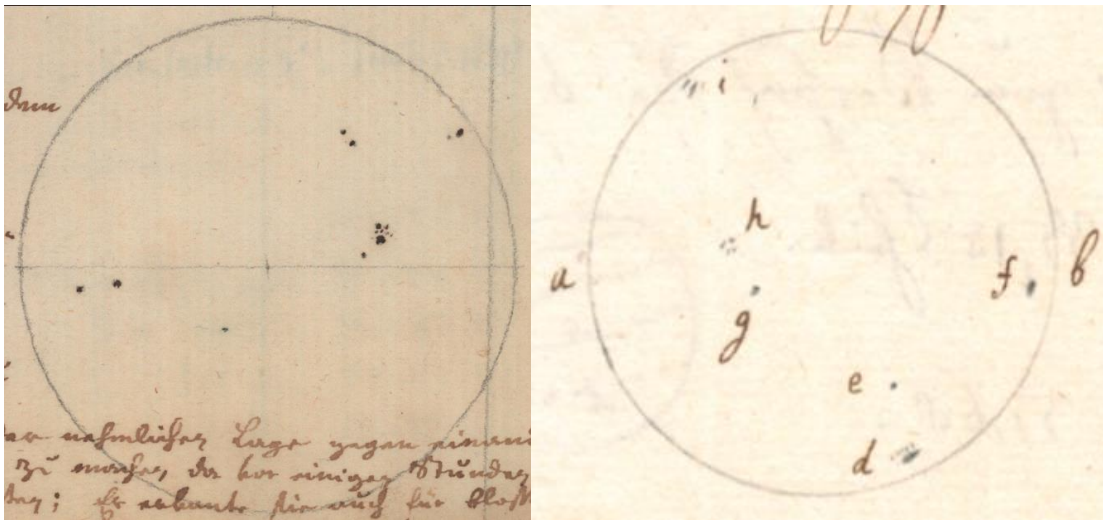 dem
der nehmlichen Lage gegen einand
zu machen, da vor einigen Stunden
Er erkante sie auch für bloss
i
h
a
f
b
g
e
d